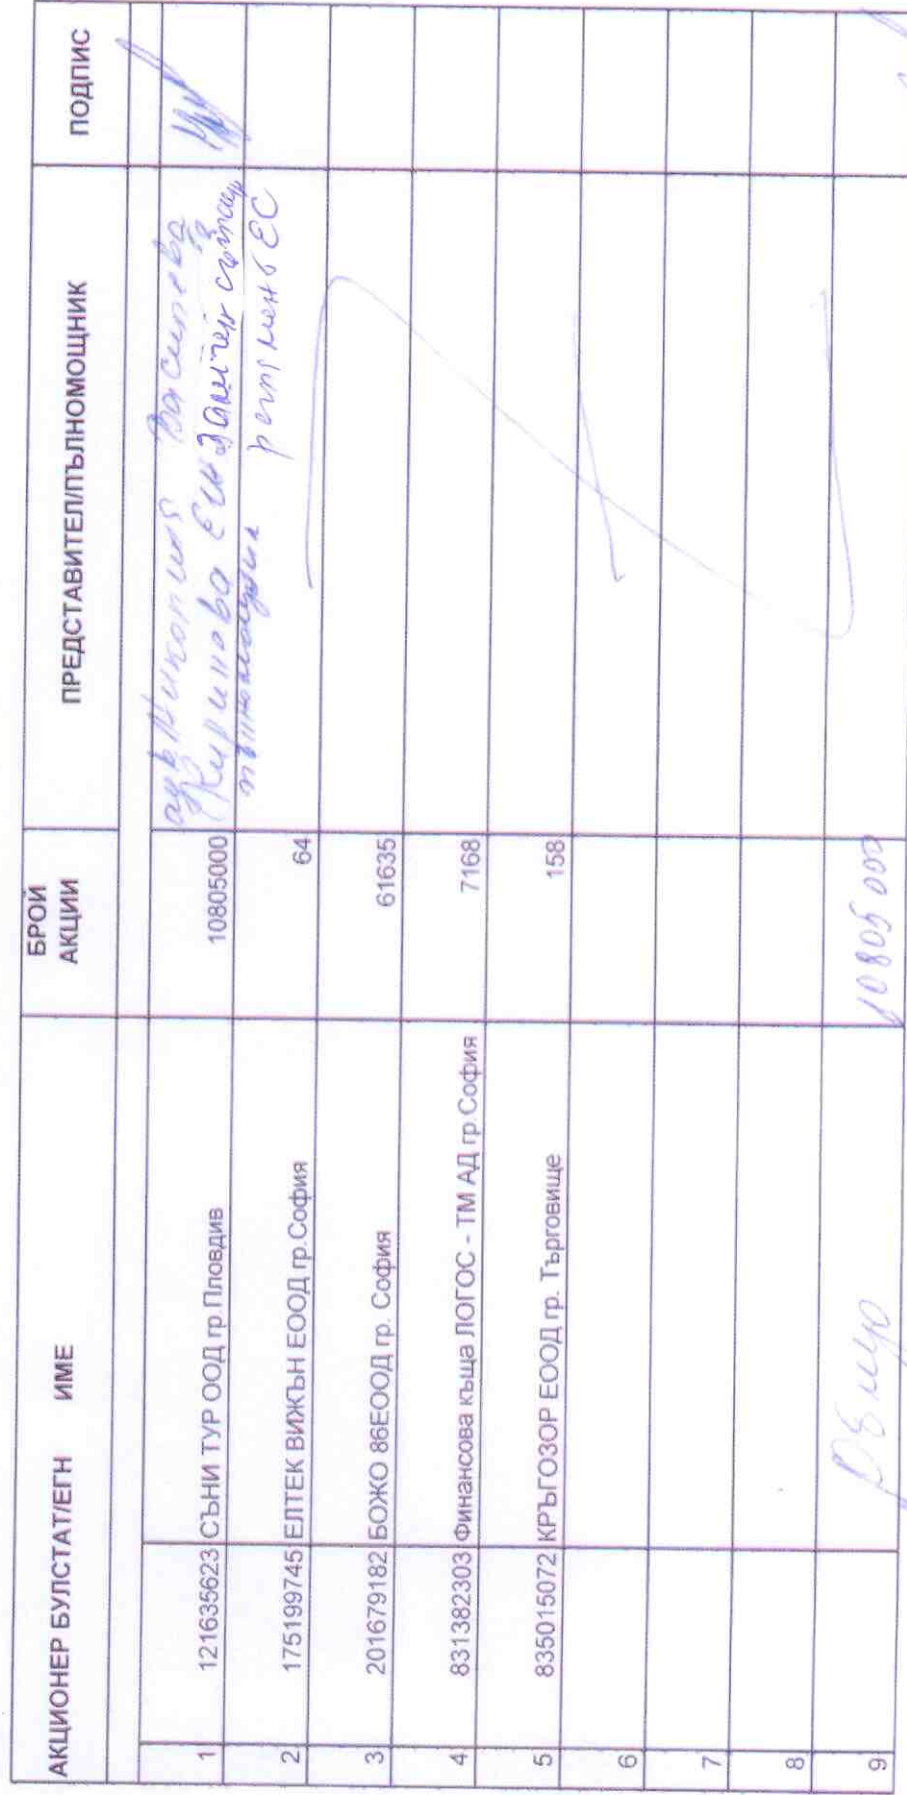 АКЦИОНЕР БУЛСТАТ/ЕГН ИМЕ БРОЙ АКЦИИ ПРЕДСТАВИТЕЛ/ПЪЛНОМОЩНИК ПОДПИС
1 121635623 СЪНИ ТУР ООД гр.Пловдив 10805000
Василева
Кирилова ЕГН Заличен съгласно
пълномощник регламент ЕС
2 175199745 ЕЛТЕК ВИЖЪН ЕООД гр.София 64
3 201679182 БОЖО 86ЕООД гр. София 61635
4 831382303 Финансова къща ЛОГОС - ТМ АД гр.София 7168
5 835015072 КРЪГОЗОР ЕООД гр. Търговище 158
6
7
8
9 Общо 10805000